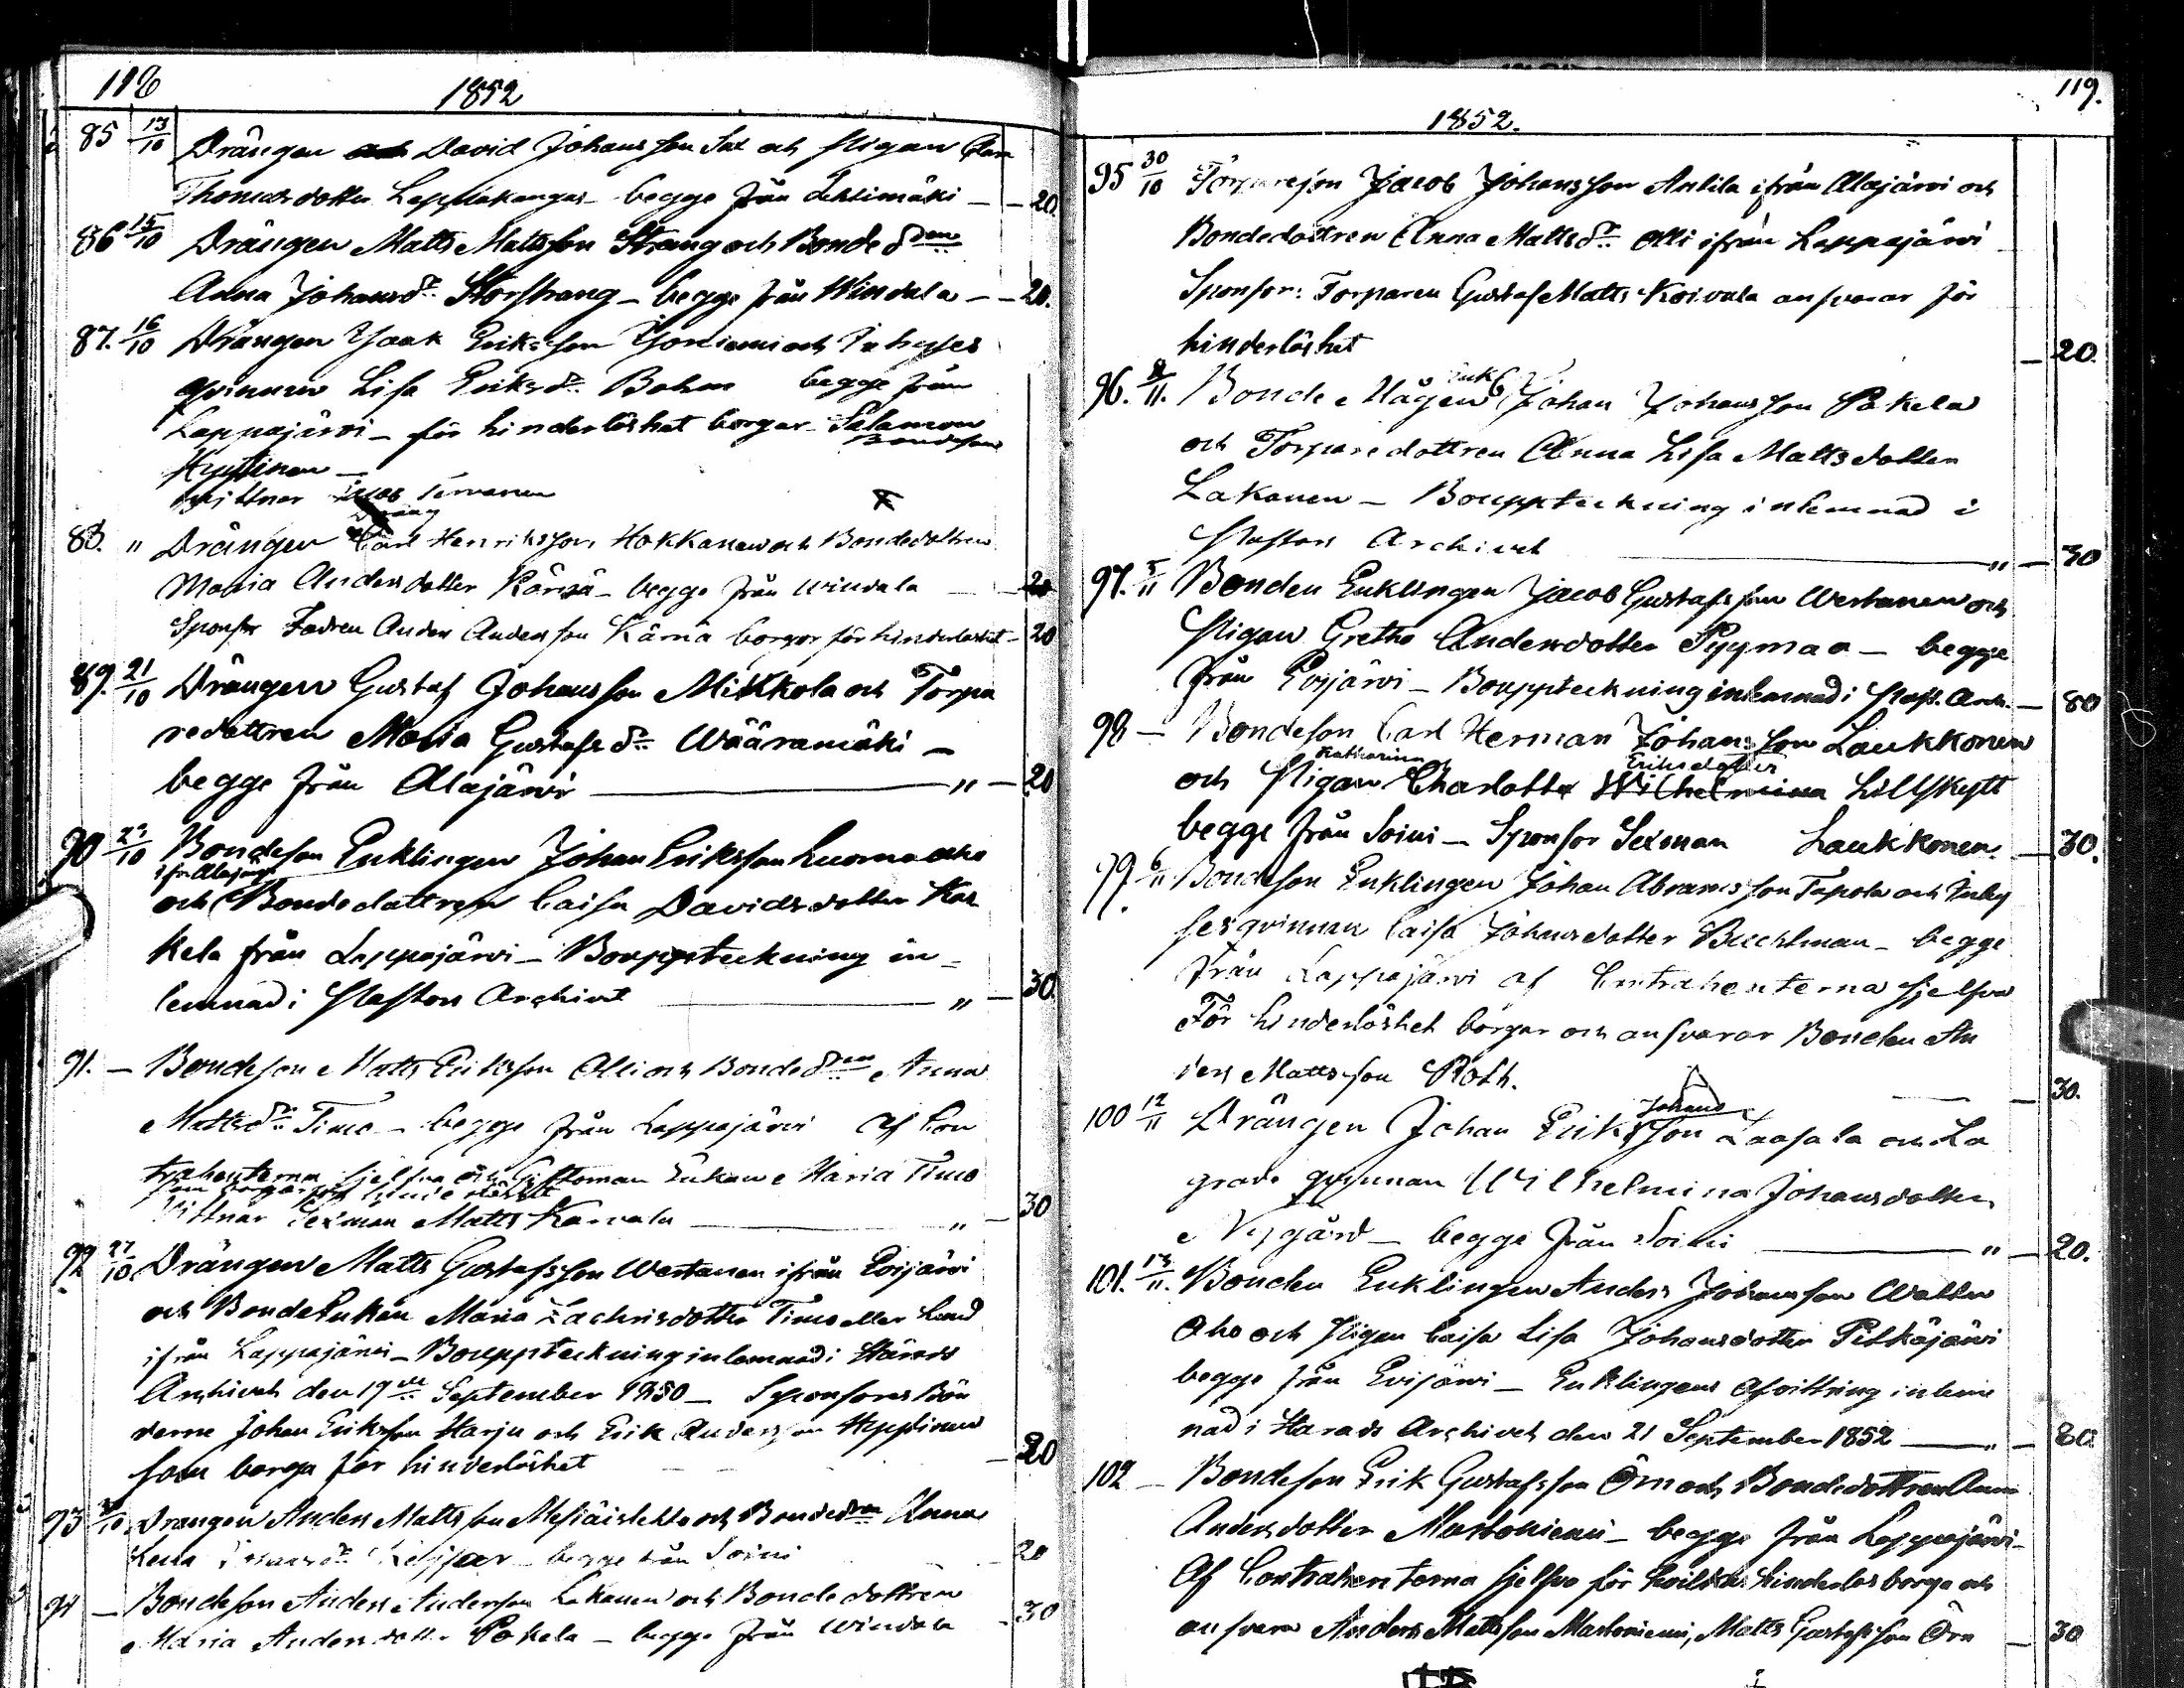 118
1852
85 13/10 Drängen David Johansson Sax och Pigan
Thomasdotter Lappakangas - begge från Lehtimäki - 20.
86 15/10 Drängen Matts Mattsson Strang och Bonde dren
Anna Johansdr Storstrang - begge från Windala - 20.
87. 16/10 Drängen Isaak Eriksson och Inhyses
qvinnan Lisa Eriksdr Bohm begge från
Lappajärvi - för hinderlöshet borgar Salamon
Bondeson
Hyytinen -
Wittnar Jacob Tervanen
Dräng
88. " Drängen Carl Henriksson Hokkanen och Bondedottren
Maria Andersdotter Kärnä - begge från Windala - 20
Sponsor Fadren Anders Andersson Kärnä borgar för hinderlöshet - 20
89. 21/10 Drängen Gustaf Johansson Mikkola och Torpa
redottren Maria Gustafsdr Wääramäki -
begge från Alajärvi " - 20
90 /10 Bondeson Enklingen Johan Eriksson Luoma aho
ifr. Alajärvi
och Bondedottren Caisa Davidsdotter Kos
kela från Lappajärvi - Bouppteckning in-
lemnad i Pastors Archivet " - 30.
91. - Bondeson Matts Eriksson Olli och Bonde dren Anna
Mattsdr Timo - begge från Lappajärvi Af Con
trahenterna sjelfva och Giftoman Enkan Maria Timo
som borgar för hinderlöshet
Wittnar Sexman Matts Karvala " - 30
92. 27/10 Drängen Matts Gustafsson Westanen ifrån Evijärvi
och Bonde Enkan Maria Zachrisdotter Timo eller Lund
ifrån Lappajärvi - Bouppteckning inlemnad i Härads
Archivet den 19de September 1850 - Sponsores Bön
derne Johan Eriksson Harju och Erik Andersson Hyytinen
som borga för hinderlöshet - 20
93 /10 Drängen Anders Mattsson och Bondedren Anna
Lena begge från Soini - 20
94 - Bondeson Anders Andersson Lakanen och Bondedottren
Maria Andersdotter Pokela - begge från Windala - 30
119.
1852.
95 30/10 Torpareson Jacob Johansson Anttila ifrån Alajärvi och
Bondedottren Anna Mattsdr Olli ifrån Lappajärvi
Sponsor: Torparen Gustaf Matts Koivula ansvarar för
hinderlöshet - 20.
96. /11. Bonde Mågen Enkl. Johan Johansson Pokela
och Torparedottren Anna Lisa Mattsdotter
Lakanen - Bouppteckning inlemnad i
Pastors Archivet " - 30
97. 5/11 Bonden Enklingen Jacob Gustafsson Westanen och
Pigan Gretha Andersdotter Pyymaa - begge
från Evijärvi - Bouppteckning inlemnad i Past. Arch. - 80
98 - Bondeson Carl Herman Johansson Laukkonen
Katharina Eriksdotter
och Pigan Charlotta Wilhelmina Lillskytt
begge från Soini - Sponsor Sexman Laukkonen. - 30.
99. 6/11 Bondeson Enklingen Johan Abramsson Tapola och Inhy
sesqvinnan Caisa Johansdotter Buchtman - begge
från Lappajärvi af Contrahenterna sjelfva
För hinderlöshet borgar och ansvarar Bonden An
ders Mattsson Roth. - 30.
100 12/11 Drängen Johan Eriksson Laasala och La
Johans
grade qvinnan Wilhelmina Johansdotter
Nygård - begge från Soini " - 20.
101. 13/11. Bonden Enklingen Anders Johansson Walten
Aho och Pigan Caisa Lisa Johansdotter Pitkäjärvi
begge från Evijärvi - Enklingens Afvittring inlem
nad i Härads Archivet den 21 September 1852 " - 80
102 - Bondeson Erik Gustafsson Örn och Bondedottren Anna
Andersdotter Martoniemi - begge från Lappajärvi -
Af Contrahenterna sjelfva för hvilkas hinderlös borga och
ansvara Anders Mattsson Martoniemi, Matts Gustafsson Örn - 30